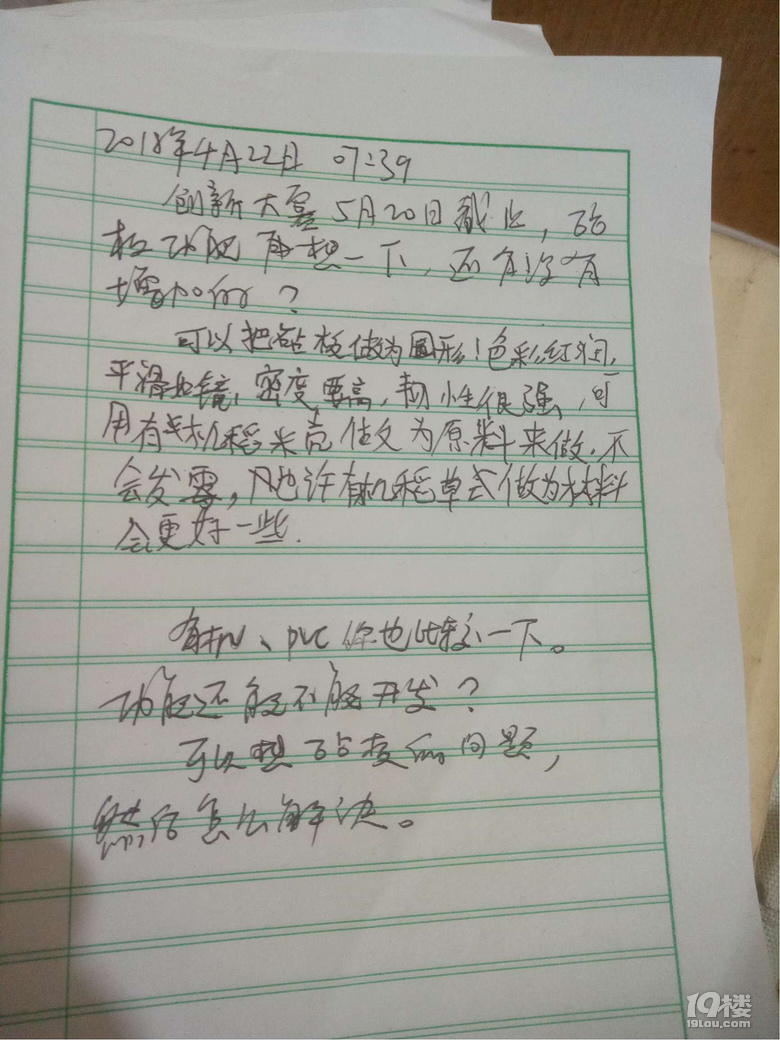 2018年4月22日 07:39
创新大赛5月20日截止，砧
板功能再想一下，还有没有
增加的？
可以把砧板做为圆形！色彩红润，
平滑如镜、密度要高，韧性很强、可
用有机稻米壳做为原料来做．不
会发霉，也许有机稻草式做为材料
会更好一些.
有机、PVC你也比较一下。
功能还能不能开发？
可以想砧板的问题，
然后怎么解决。
19楼
19lou.com